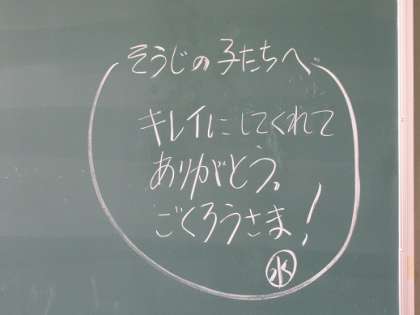 そうじの子たちへ
キレイにしてくれて
ありがとう。
ごくろうさま!
㊌